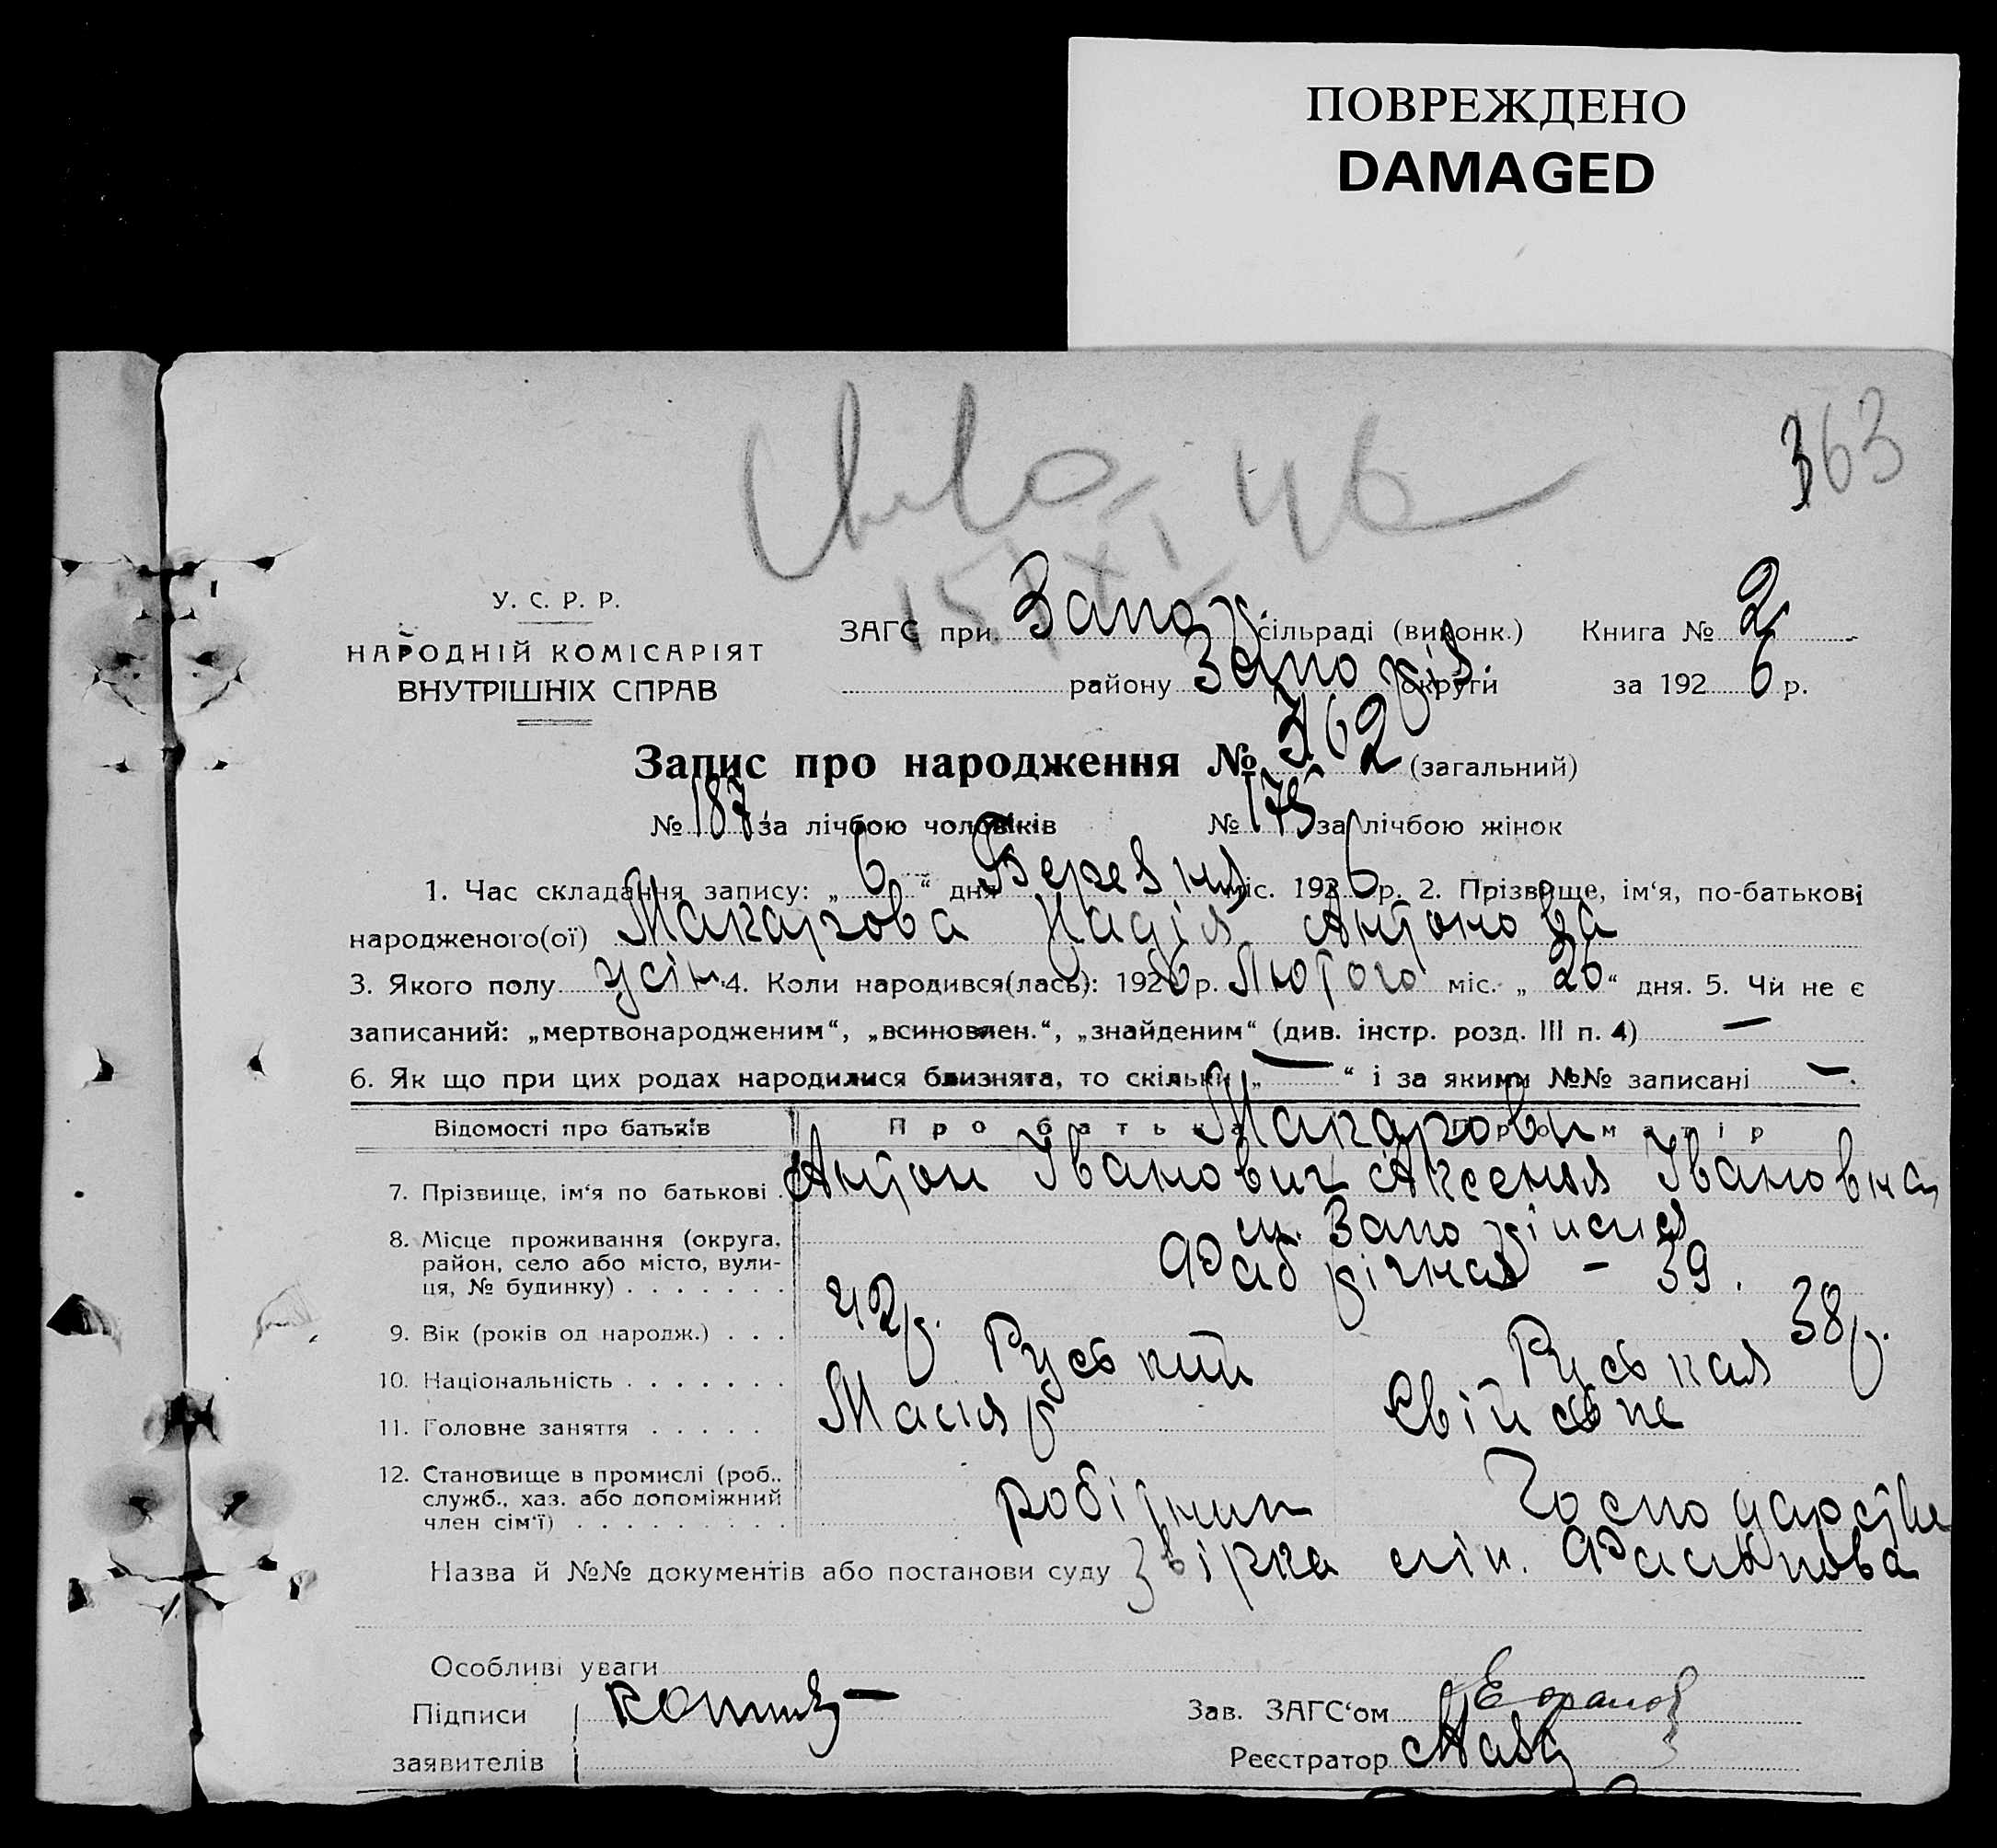 ПОВРЕЖДЕНО
DAMAGED
363
46
15 XI
У. С. Р. Р.
НАРОДНІЙ КОМІСАРІЯТ
ВНУТРІШНІХ СПРАВ
ЗАГС при Запор сільраді (виконк.) Книга № 2
району Запоріз. округи за 1926 р.
Запис про народження № 362 (загальний)
№ 187 за лічбою чоловіків № 175 за лічбою жінок
1. Час складання запису: „6“ дня Березня міс. 1926 р. 2. Прізвище, ім‘я, по-батькові
народженого(ої) Макарова Надія Антонова
3. Якого полу жін. 4. Коли народився(лась): 1926 р. Лютого міс. „26“ дня. 5. Чи не є
записаний: „мертвонародженим“, „всиновлен.“, „знайденим“ (див. інстр. розд. III п. 4) —
6. Як що при цих родах народилися близнята, то скільки „—“ і за якими №№ записані —.
Відомості про батьків Про батька Про матір
Макарови
7. Прізвище, ім‘я по батькові Антон Іванович Аксенья Івановна
8. Місце проживання (округа, район, село або місто, вулиця, № будинку) м. Запоріжжя
Фабрічная – 39.
9. Вік (років од народж.) 42р. 38р.
10. Національність Руський Руская
11. Головне заняття Маляр Свійське
12. Становище в промислі (роб., служб., хаз. або допоміжний член сім‘ї) робітник Господарство
Назва й №№ документів або постанови суду Звірка лік.
Особливі уваги
Підписи копия —
заявителів
Зав. ЗАГС‘ом
Реєстратор